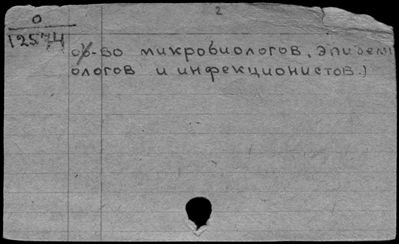 2
О
12574
об-во микробиологов, эпидеми
ологов и инфекционистов.)